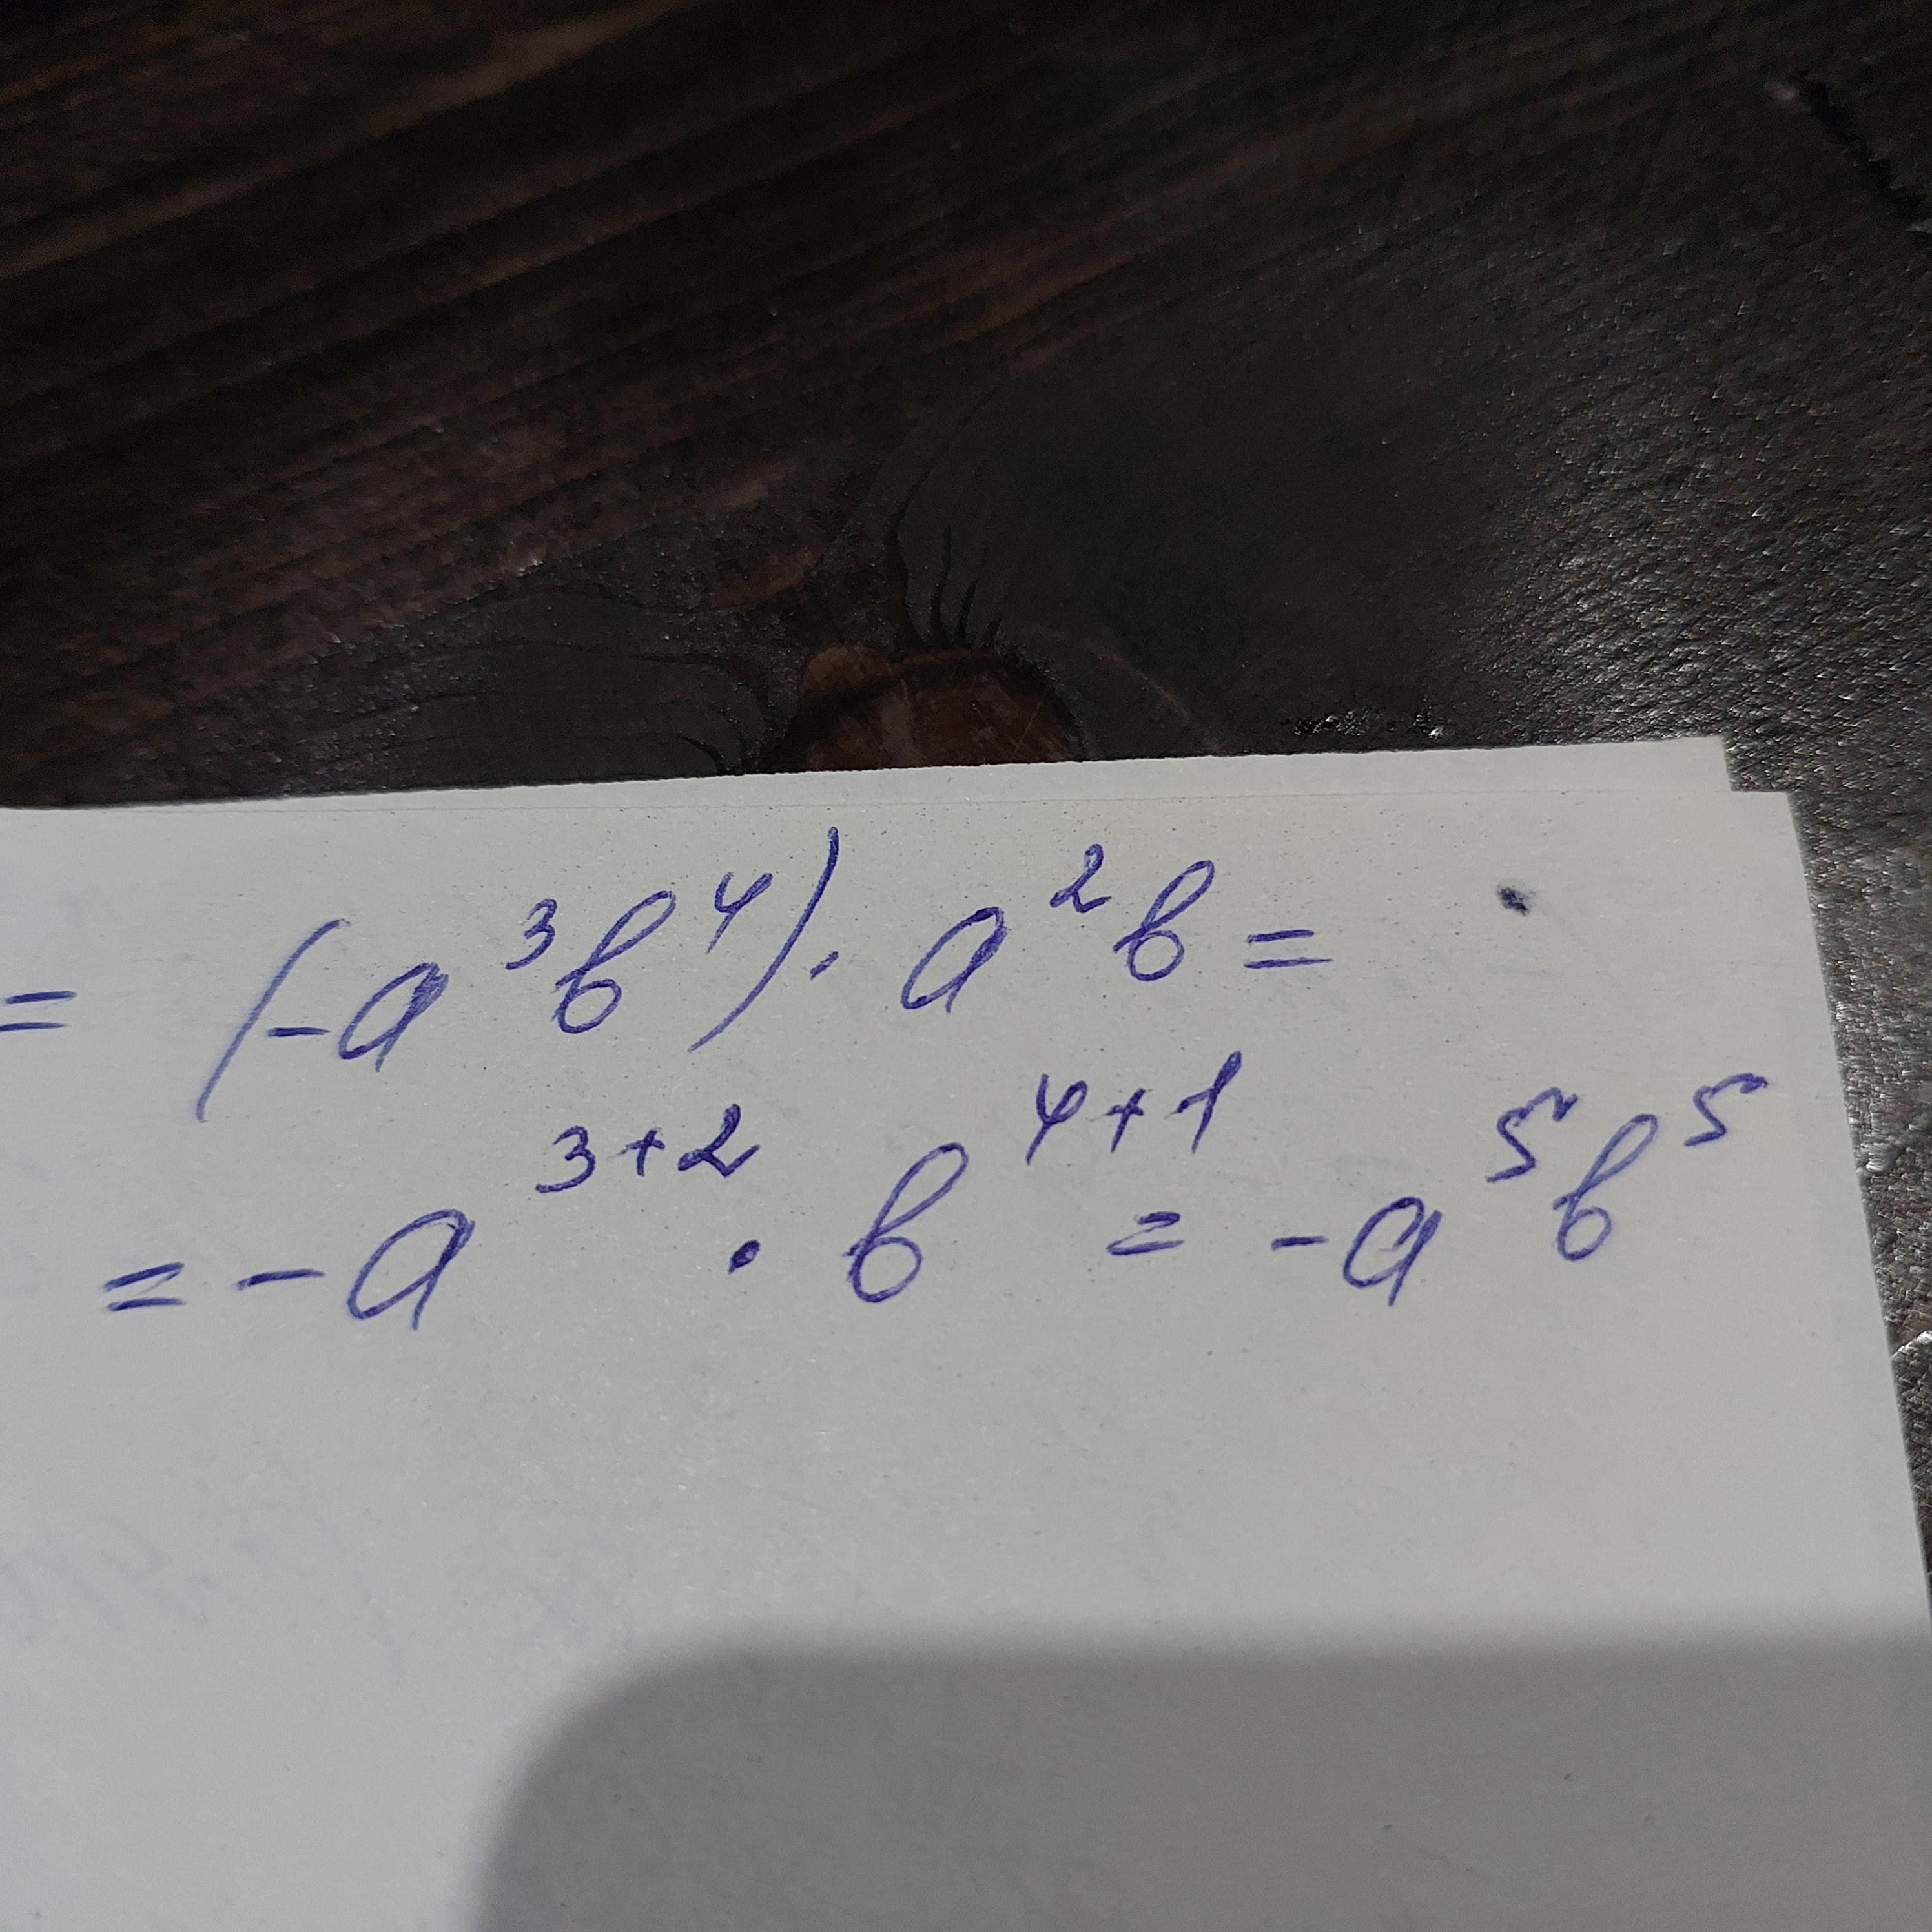 = (-a³b⁴) · a²b =
= -a³⁺² · b⁴⁺¹ = -a⁵b⁵